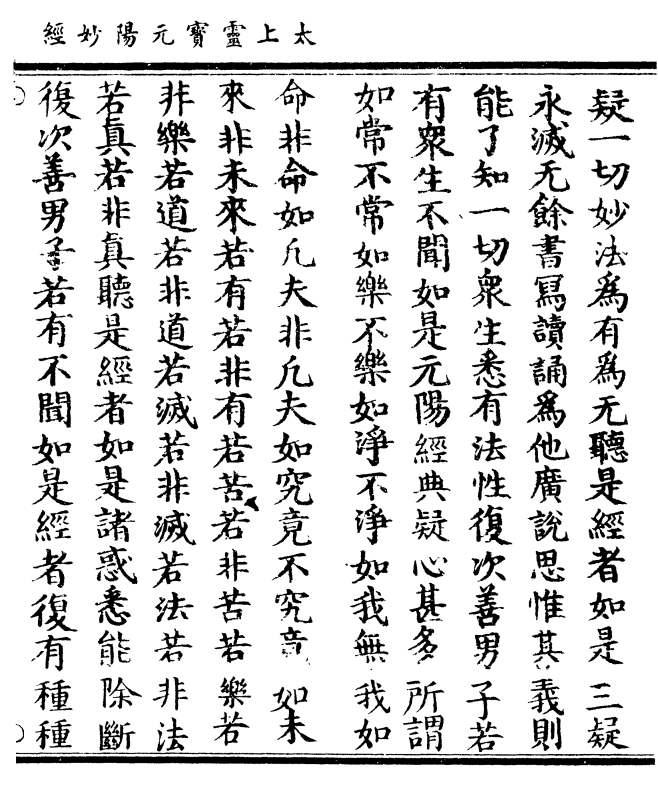 太上靈寶元陽妙經
疑一切妙法爲有爲无聽是經者如是三疑
永滅无餘書寫讀誦爲他廣說思惟其義則
能了知一切衆生悉有法性復次善男子若
有衆生不聞如是元陽經典疑心甚多所謂
如常不常如樂不樂如淨不淨如我無我如
命非命如凡夫非凡夫如究竟不究竟如未
來非未來若有若非有若苦若非苦若樂若
非樂若道若非道若滅若非滅若法若非法
若真若非真聽是經者如是諸惑悉能除斷
復次善男子若有不聞如是經者復有種種